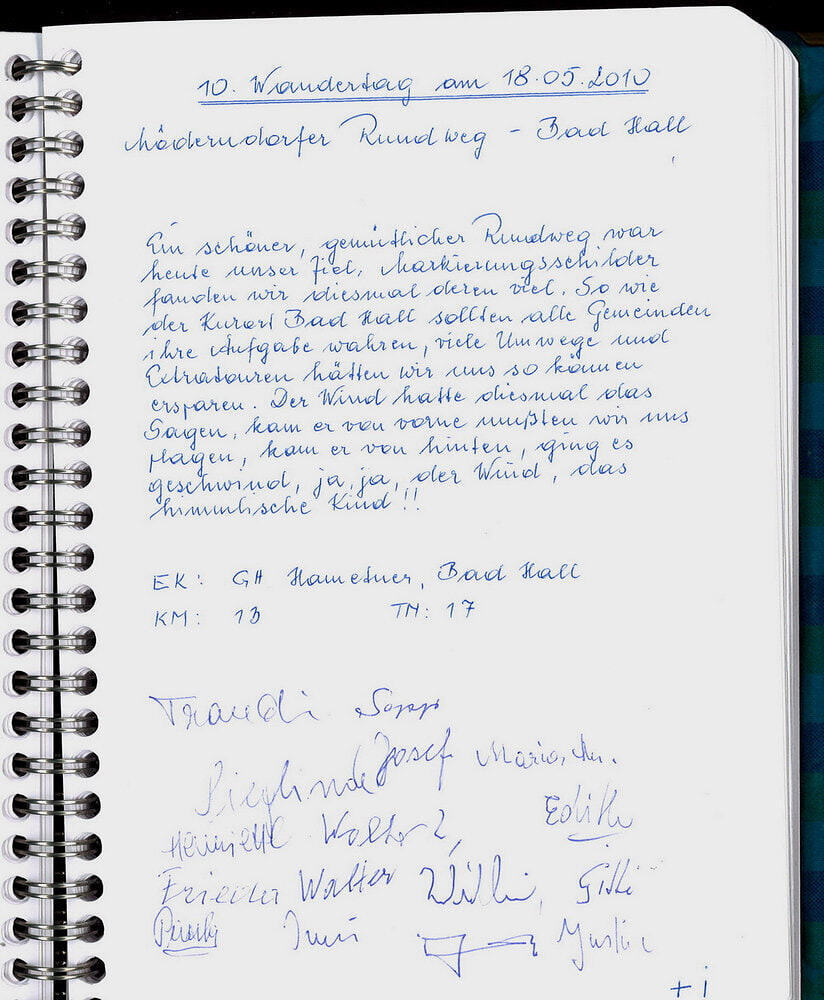 10. Wandertag am 18.05.2010
Möderndorfer Rundweg - Bad Hall
Ein schöner, gemütlicher Rundweg war
heute unser Ziel. Markierungsschilder
fanden wir diesmal deren viel. So wie
der Kurort Bad Hall sollten alle Gemeinden
ihre Aufgabe wahren, viele Umwege und
Extratouren hätten wir uns so können
ersparen. Der Wind hatte diesmal das
Sagen, kam er von vorne mußten wir uns
plagen, kam er von hinten, ging es
geschwind, ja, ja, der Wind, das
himmlische Kind!!
EK: GH Hametner, Bad Hall
KM: 13 TN: 17
Traudi Sepp
Sieglinde Josef Maria
Henriette Walter 2, Edith
Frieder Walter Willi, Gitti
+ i